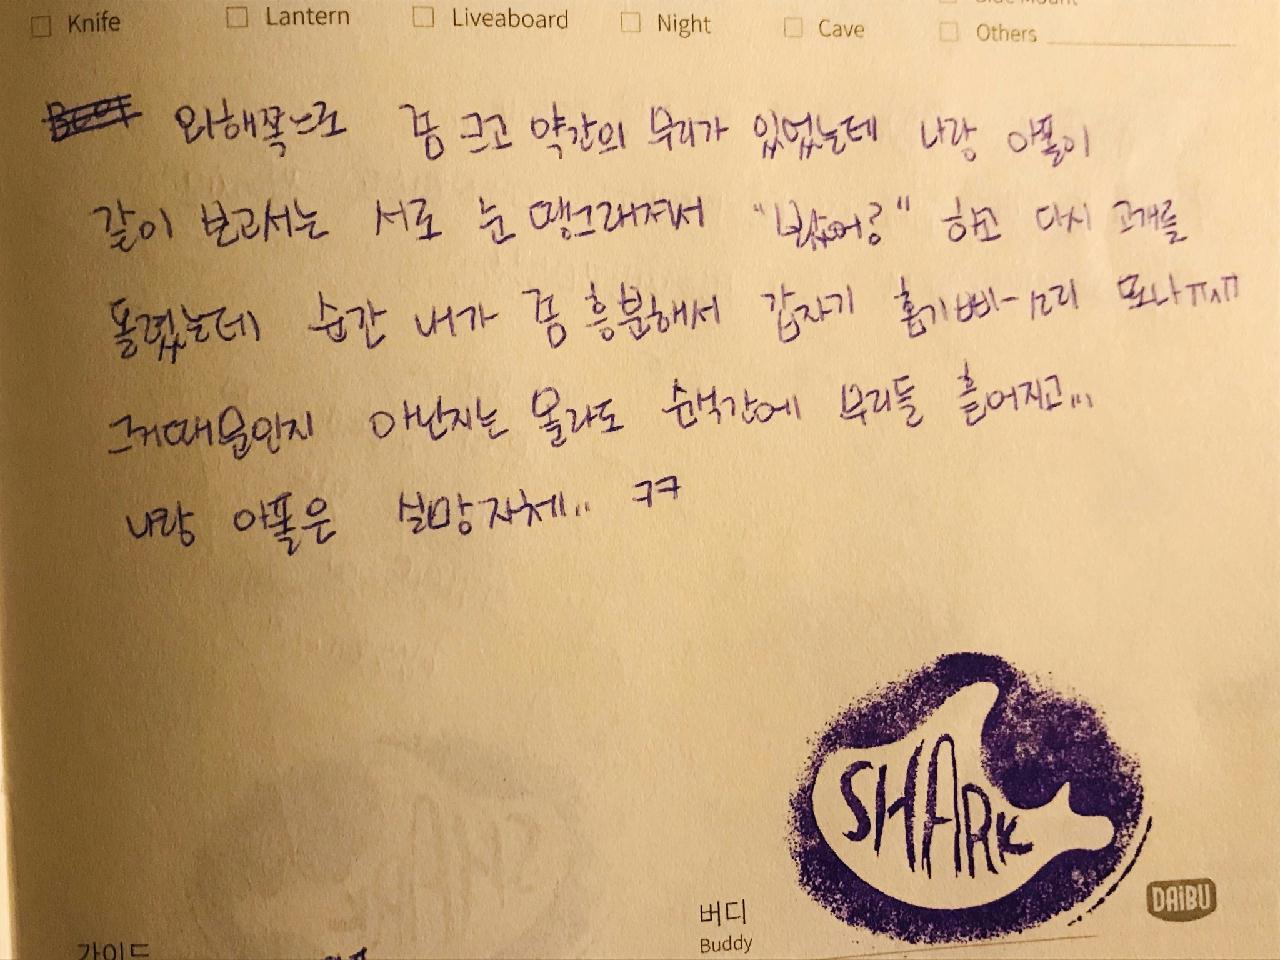 Knife Lantern Liveaboard Night Cave Others
외해쪽으로 쫌 크고 약간의 무리가 있었는데 나랑 아폴이
같이 보고서는 서로 눈 땡그래져서 "봤어?" 하고 다시 고개를
돌렸는데 순간 내가 쫌 흥분해서 갑자기 홈기빠-소리 또나ㅠㅅㅠ
그거때문인지 아닌지는 몰라도 순식간에 무리들 흩어지고...
나랑 아폴은 실망자체.. ㅋㅋ
SHARK
DAiBU
버디
Buddy
가이드